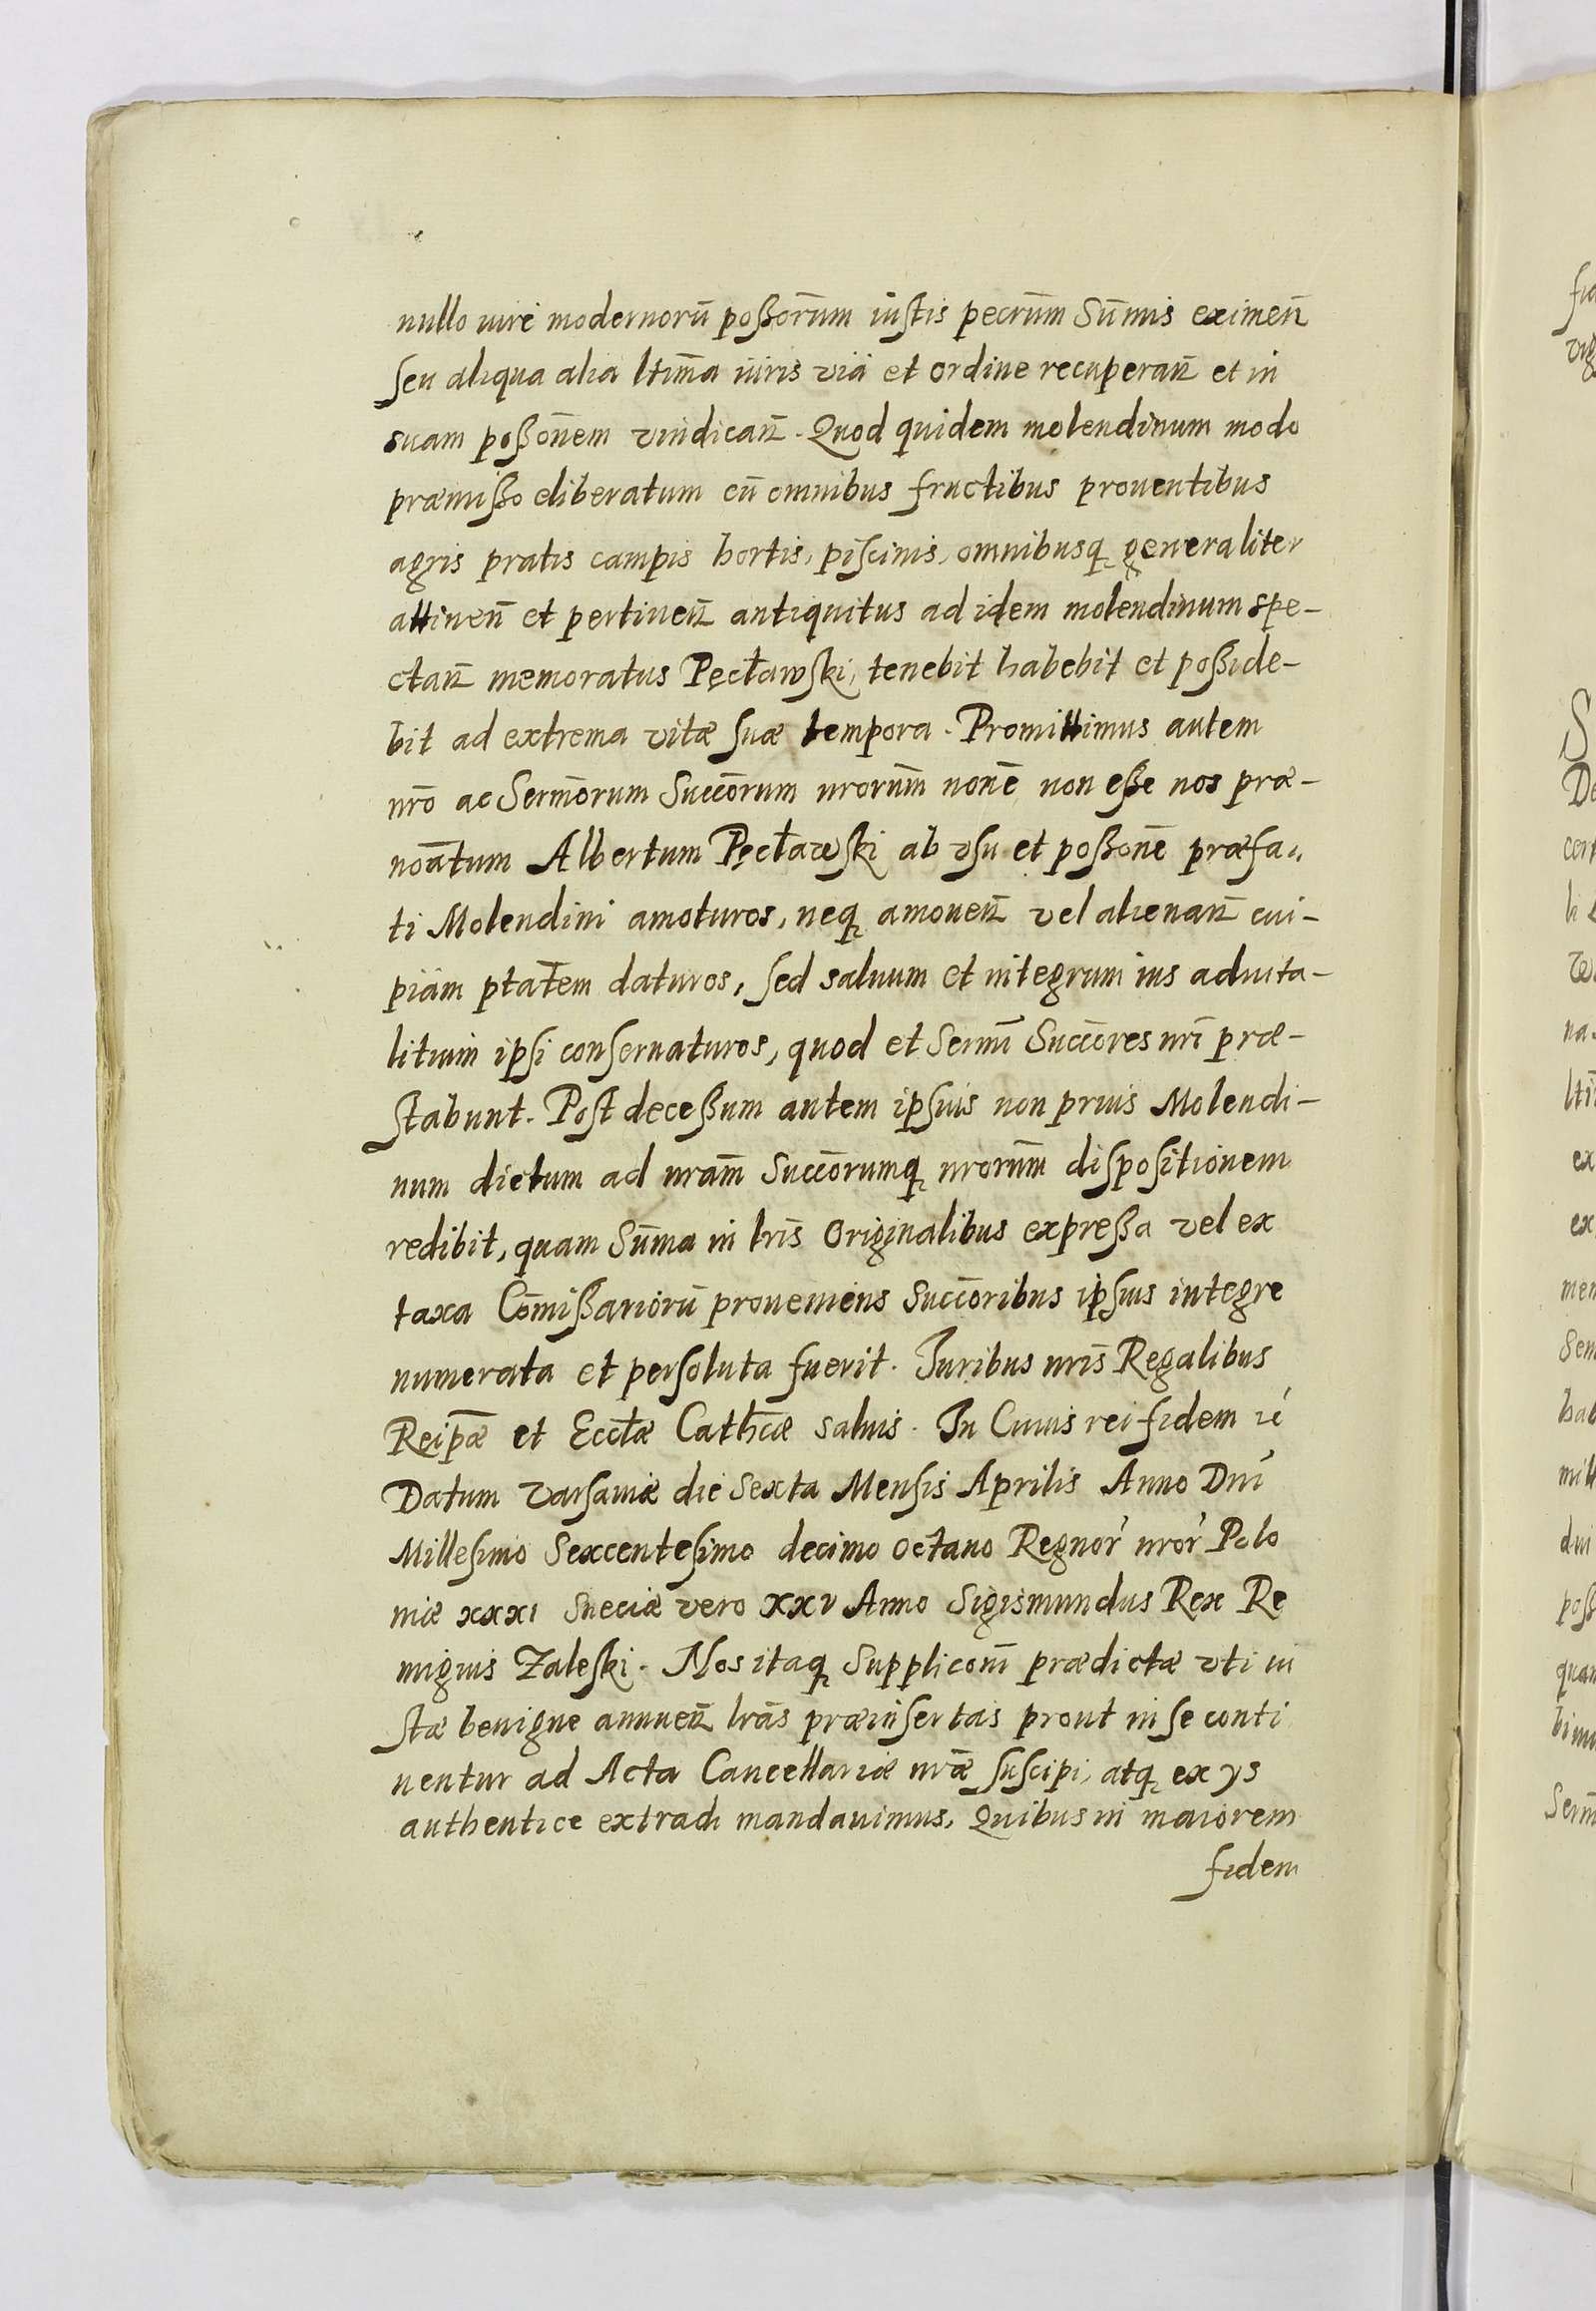 nullo iure modernorū poßorūm iustis pecrūm Sum̄is eximen̄
seu aliqua alia ltim̄a iuris via et ordine recuperan̄ et in
suam poßōnem vindican̄. Quod quidem molendinum modo
præmißo eliberatum cū omnibus fructibus prouentibus
agris pratis campis hortis, piscinis, omnibusq generaliter
attinen̄ et pertinen̄ antiquitus ad idem molendinum spe-
ctan̄ memoratus Pęcławski, tenebit habebit et poßide-
bit ad extrema vitæ suæ tempora. Promittimus autem
nr̄o ac Serm̄orum Succōrum nrorūm nōne non eße nos præ-
noātum Albertum Pęcławski ab vsu et poßonē præfa-
ti Molendini amoturos, neq amouen̄ vel alienan̄ cui-
piam ptat̄em daturos, sed saluum et integrum ius aduita-
litium ipsi conseruaturos, quod et Serm̄i Succōres nr̄i præ-
stabunt. Post deceßum autem ipsius non prius Molendi-
num dictum ad nram̄ Succōrumq nrorūm dispositionem
redibit, quam Sum̄a in lr̄is Originalibus expreßa vel ex
taxa Com̄ißariorū proueniens Succōribus ipsius integre
numerata et persoluta fuerit. Iuribus nr̄is Regalibus
Reipǣ et Eccłæ Cathcǣ saluis. In Cuius rei fidem ić
Datum Varsauiæ die Sexta Mensis Aprilis Anno Dn̄i
Millesimo Sexcentesimo decimo octauo Regnor̕ nror̕ Polo
niæ xxxi Sueciæ vero xxv Anno Sigismundus Rex Re
migius Zaleski. Nos itaq Supplicōni prædictæ vti iu
stæ benigne annuen̄ lrās præinsertas prout in se conti
nentur ad Acta Cancellariæ nrǣ suscipi, atq ex ys
authentice extradi mandauimus. Quibus in maiorem
fidem